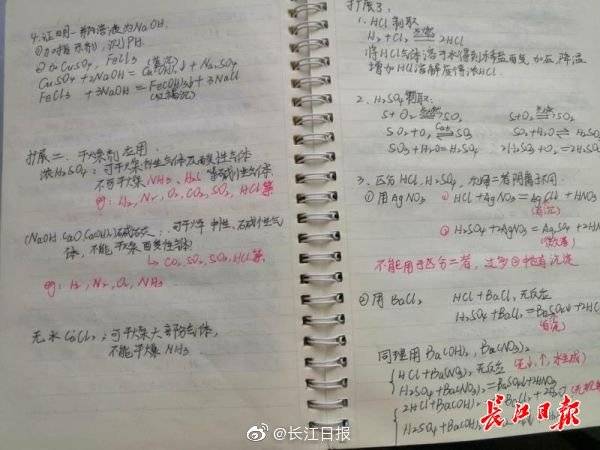 4.证明一瓶溶液为NaOH.
①加指示剂,测PH.
②加CuSO₄、FeCl₃
CuSO₄+2NaOH=Cu(OH)₂↓+Na₂SO₄
FeCl₃+3NaOH=Fe(OH)₃↓+3NaCl
扩展二:干燥剂应用:
浓H₂SO₄:可干燥中性气体及酸性气体
不可干燥NH₃、H₂S等碱性气体.
例:H₂,N₂,O₂,CO₂,SO₂,HCl等
(NaOH、CaO、Ca(OH)₂)碱石灰:可干燥中性、碱性气
体,不能干燥酸性气体
CO₂,SO₂,SO₃,HCl等
例:H₂,N₂,O₂,NH₃
无水CaCl₂:可干燥大部分气体,
不能干燥NH₃
扩展3:
1.HCl制取
H₂+Cl₂=2HCl
将HCl气体溶于水得到
增加HCl溶解度得浓HCl.
2.H₂SO₄制取:
S+O₂=SO₂ S+O₂=SO₂
SO₂+O₂=SO₃ SO₂+H₂O=H₂SO₃
SO₃+H₂O=H₂SO₄ 2H₂SO₃+O₂=2H₂SO₄
3.区分HCl,H₂SO₄,
①用AgNO₃ ①HCl+AgNO₃=AgCl↓+HNO₃
②H₂SO₄+AgNO₃=Ag₂SO₄+2H
(微溶)
不能用于区分二者,
②用BaCl₂ HCl+BaCl₂无反应
H₂SO₄+BaCl₂=BaSO₄↓+2HCl
同理用Ba(OH)₂,Ba(NO₃)₂
HCl+Ba(NO₃)₂无反应(无↓,↑,水生成)
H₂SO₄+Ba(NO₃)₂=BaSO₄↓+2HNO₃
2HCl+Ba(OH)₂=BaCl₂+2H₂O
H₂SO₄+Ba(OH)₂
长江日报
@长江日报